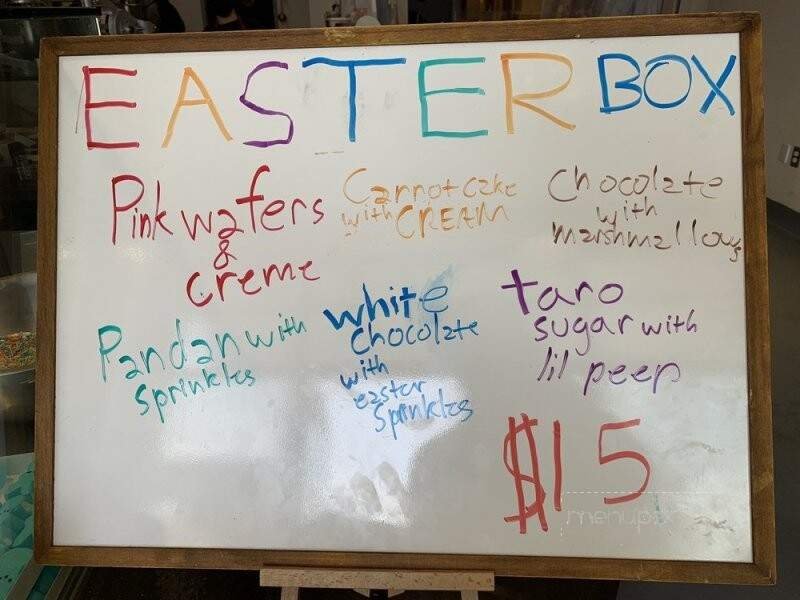 EASTER BOX
Pink wafers
&
creme
Carrot cake
with CREAM
Chocolate
with
marshmallows
Pandan with
sprinkles
white
chocolate
with
easter
sprinkles
taro
sugar with
lil peep
$15
menupix